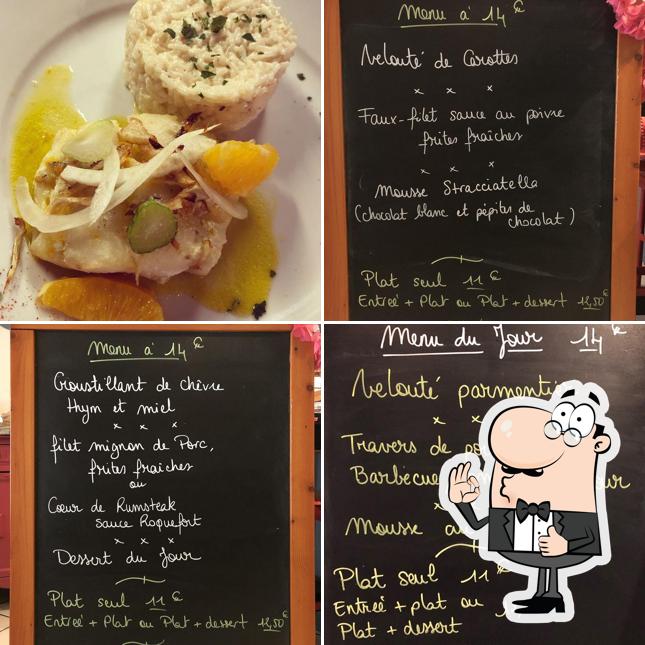 Menu à 14 €
Velouté de Carottes
x x x
Faux-filet sauce au poivre
frites fraîches
x x x
Mousse Stracciatella
(chocolat blanc et pépites de
chocolat)
Plat seul 11 €
Entreé + Plat ou Plat + dessert 12,50 €
Menu à 14 €
Croustillant de chèvre
thym et miel
x x x
filet mignon de Porc,
frites fraîches
ou
Cœur de Rumsteak
sauce Roquefort
x x x
Dessert du Jour
Plat seul 11 €
Entreé + Plat ou Plat + dessert 12,50 €
Menu du Jour 14 €
Velouté
x x
Travers de
Barbecue
Mousse
Plat seul 11
Entreé + plat ou
Plat + dessert